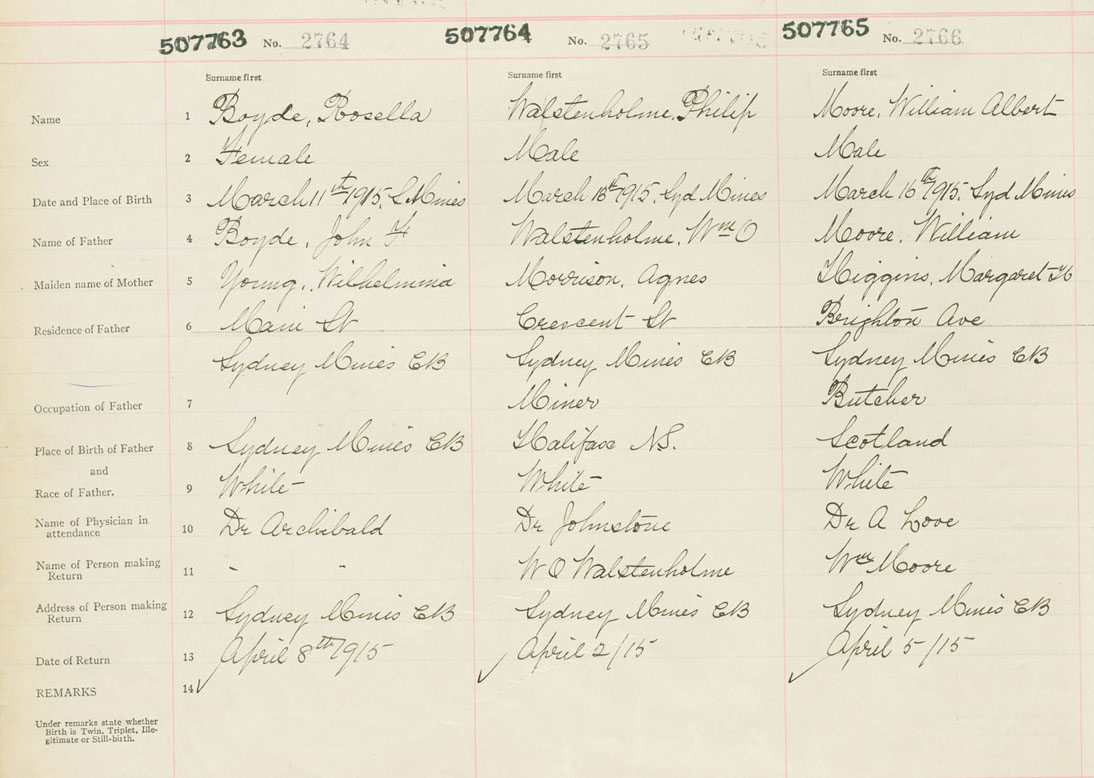 507763 No. 2764 507764 No. 2765 507765 No. 2766
Surname first Surname first Surname first
Name 1 Boyde, Rosella Walstenholme, Philip Moore, William Albert
Sex 2 Female Male Male
Date and Place of Birth 3 March 11th 1915, S. Mines March 18th 1915, Syd Mines March 16th 1915, Syd Mines
Name of Father 4 Boyde, John F Walstenholme, Wm O Moore, William
Maiden name of Mother 5 Young, Wilhelmina Morrison, Agnes Higgins, Margaret H
Residence of Father 6 Main St Crescent St Brighton Ave
Sydney Mines CB Sydney Mines CB Sydney Mines CB
Occupation of Father 7 Miner Butcher
Place of Birth of Father 8 Sydney Mines CB Halifax N.S. Scotland
and
Race of Father. 9 White White White
Name of Physician in attendance 10 Dr Archibald Dr Johnstone Dr A Love
Name of Person making Return 11 " " W O Walstenholme Wm Moore
Address of Person making Return 12 Sydney Mines CB Sydney Mines CB Sydney Mines CB
Date of Return 13 April 8th 1915 April 2/15 April 5/15
REMARKS 14
Under remarks state whether
Birth is Twin, Triplet, Ille-
gitimate or Still-birth.